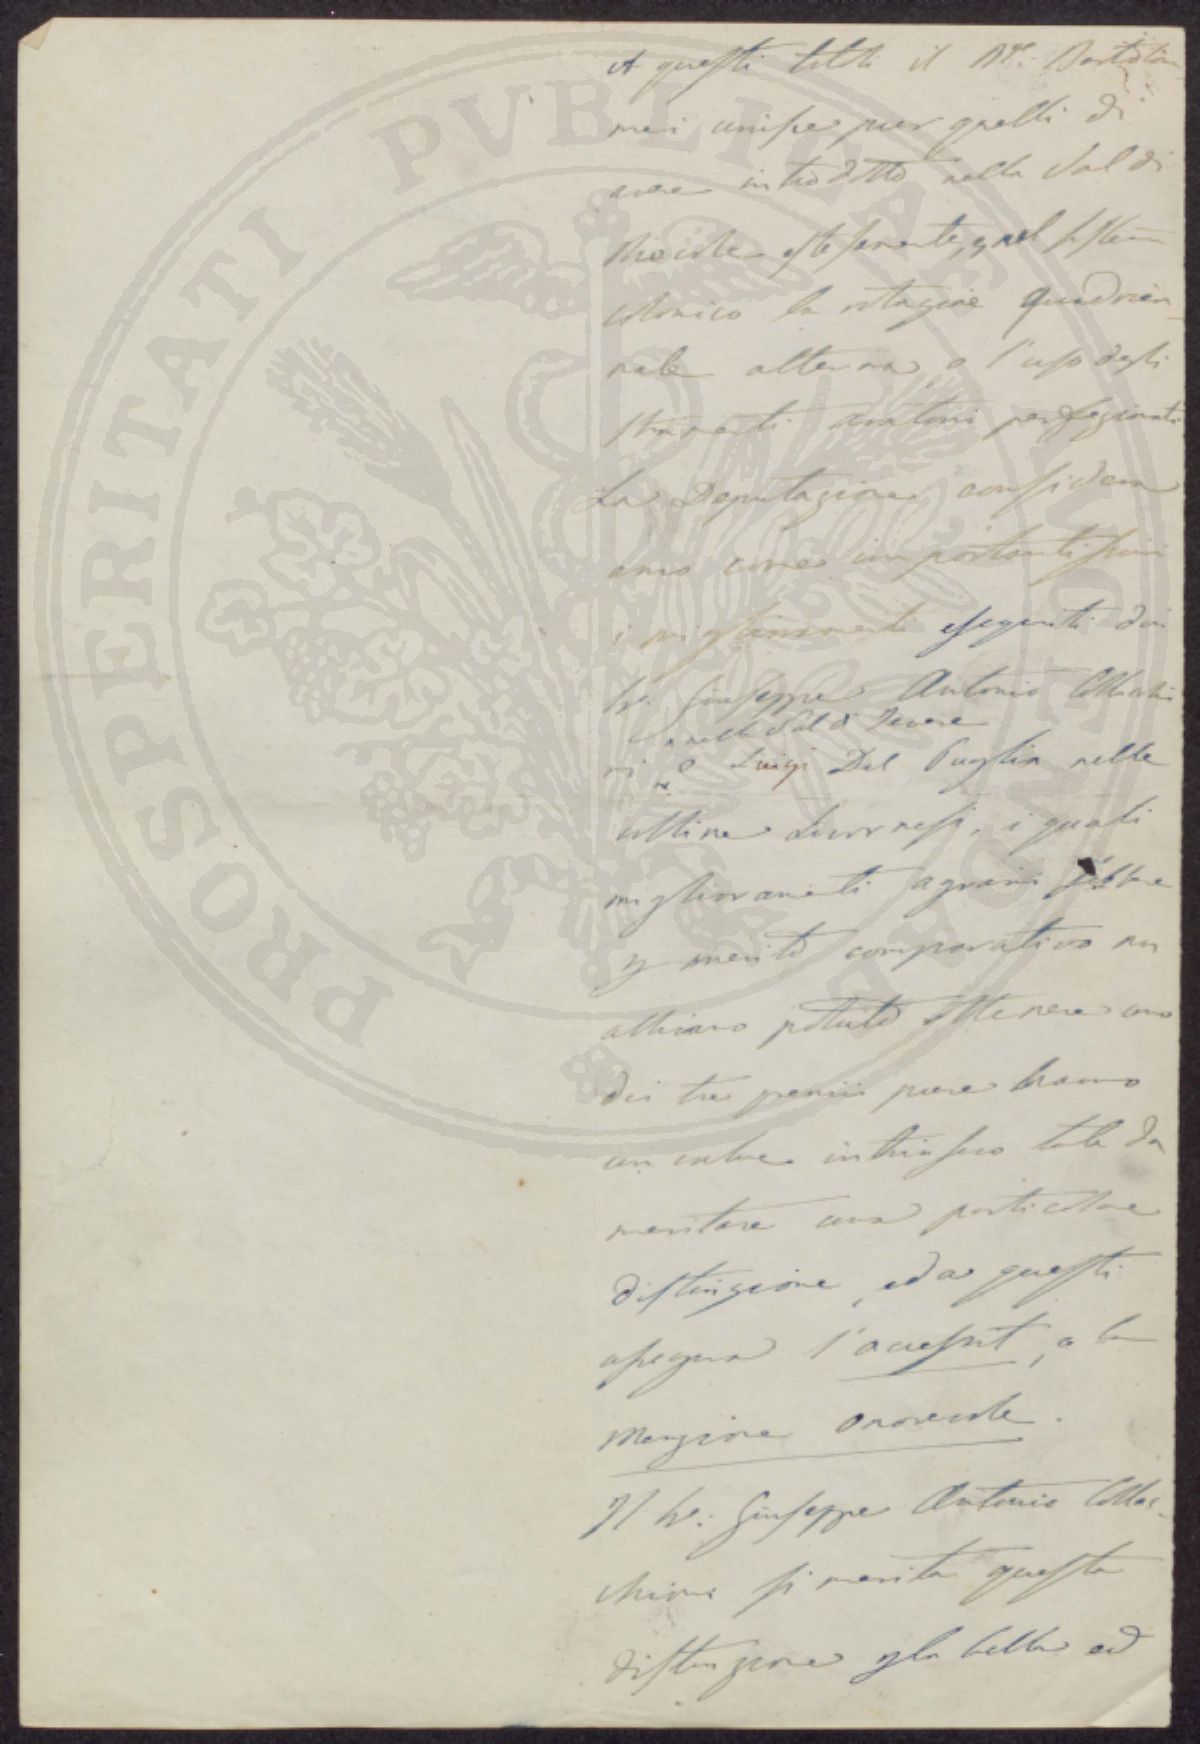 A questi titoli il Dre. Bartolom-
mei unisce pur quelli di
avere introdotto nella Val di
Nievole estesamente, quel sistema
colonico la rotazione quadrien-
nale alterna, e l'uso degli
strumenti aratorii perfezionati
La Deputazione considera-
ano come importantissimi
i miglioramenti eseguiti dai
Sr. Giuseppe Antonio Collacchi
nella Val di Tevere
ni e Luigi Del Puglia nelle
colline Livornesi, i quali
miglioramenti agrarii sebbene
p merito comparativo non
abbiano potuto ottenere uno
dei tre premii pure hanno
un valore intrinseco tale da
meritare una particolare
distinzione, ed a questi
assegna l'accessit, e la
Menzione Onorevole.
Il Sr. Giuseppe Antonio Collac-
chioni si merita questa
distinzione p la bella ed
PROSPERITATI PVBLICAE AVGENDAE